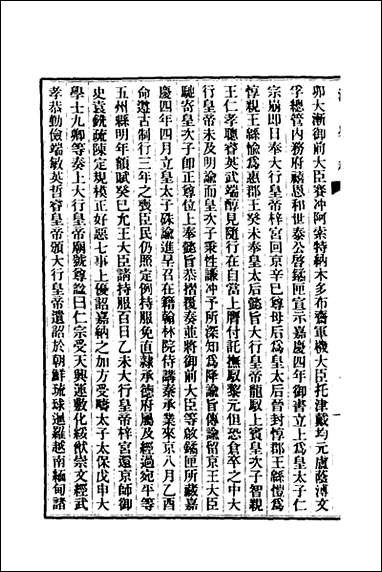 卯大漸御前大臣賽沖阿索特納木多布齋軍機大臣托津戴均元盧蔭溥文
孚總管内務府禧恩和世泰公啓鐍匣宣示嘉慶四年御書立上爲皇太子仁
宗崩即日奉大行皇帝梓宮回京辛巳尊母后爲皇太后晉封惇郡王緜愷爲
惇親王緜愉爲惠郡王癸未奉皇太后懿旨大行皇帝龍馭上賓皇次子智親
王仁孝聰睿英武端醇見隨行在自當上膺付託撫馭黎元但恐倉卒之中大
行皇帝未及明諭而皇次子秉性謙沖予所深知爲降諭旨傳諭留京王大臣
馳寄皇次子即正尊位上奉懿旨恭摺覆奏並將御前大臣等啟鐍匣所藏嘉
慶四年四月立皇太子硃諭進呈召在籍翰林院侍講秦承業來京八月乙酉
命遵古制行三年之喪臣民仍照定例持服免直隸承德府屬及經過宛平等
五州縣明年額賦癸巳允王大臣請持服百日乙未大行皇帝梓宮還京師御
史袁銑疏陳定規模正好惡七事上優詔嘉納之加方受疇太子太保戊申大
學士九卿等奏上大行皇帝廟號尊諡曰仁宗受天興運敷化綏猷崇文經武
孝恭勤儉端敏英哲睿皇帝頒大行皇帝遺詔於朝鮮琉球暹羅越南緬甸諸